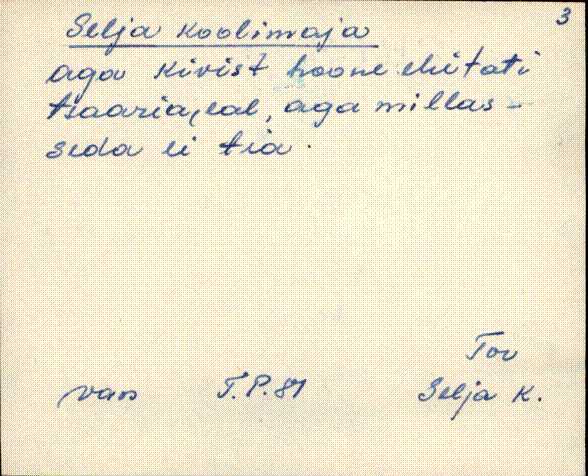 3
Selja koolimaja
aga kivist hoone ehitati
tsaariaeal, aga millas -
seda ei tia.
Tov
van T.P.81 Selja K.